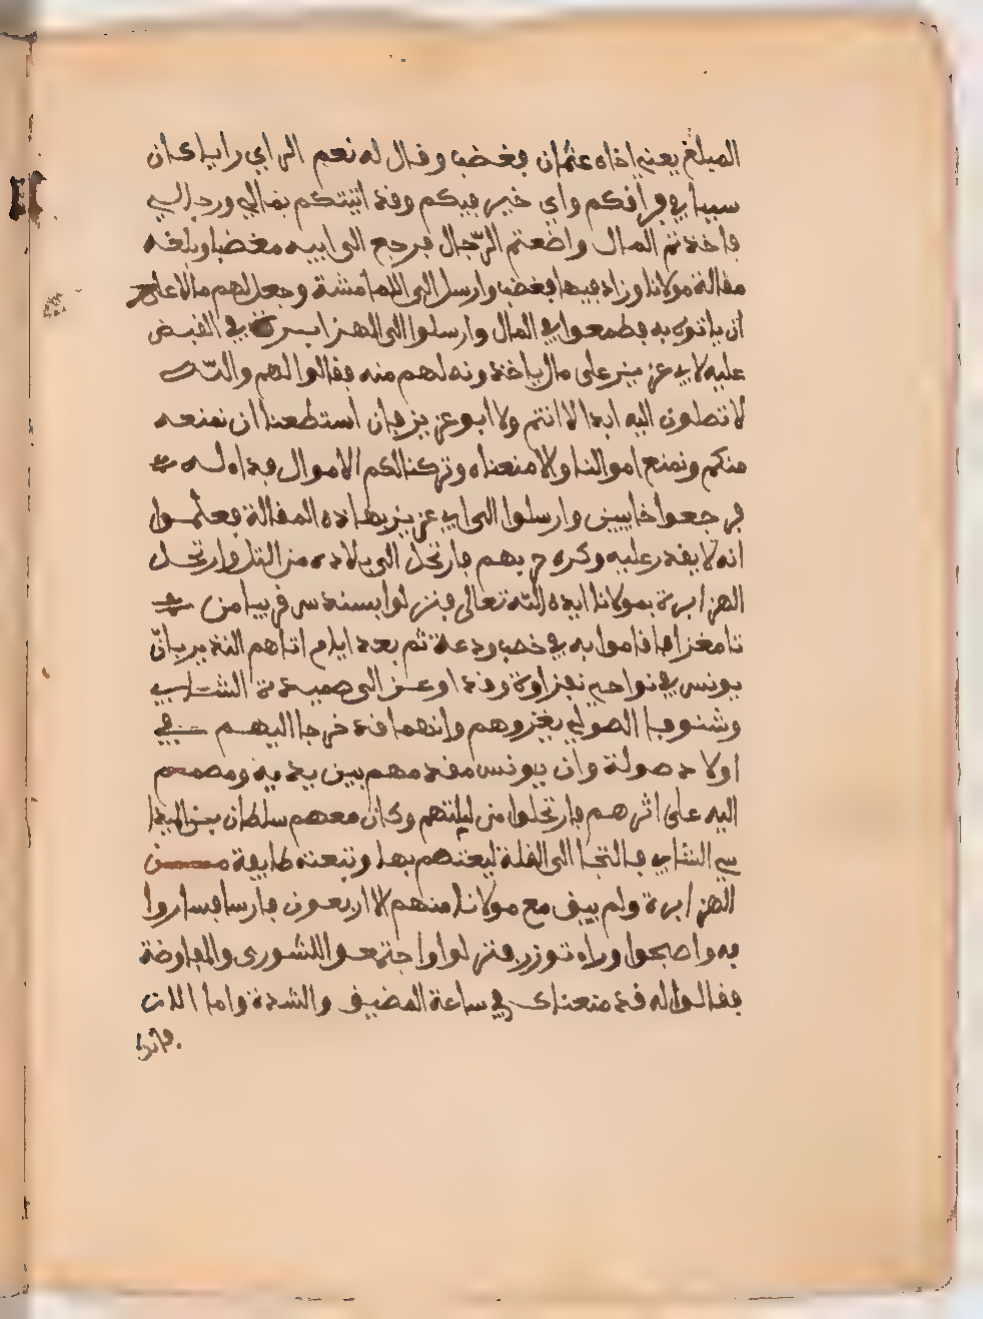 المبلغ يعني اخاه عثمان فغضب وقال له نعم الراي رايا كان
سببا في فراقكم واي خير فيكم وقد اتيتكم بمالي ورجالي
فاخذتم المال واضعتم الرّجال فرجع الى ابيه مغضبا وبلغه
مقالة مولانا وزاد فيها فغضب وارسل الى اللمامشة وجعل لهم مالا على
ان ياتوه به فطمعوا في المال وارسلوا الى الهزابرة في القبض
عليه لابي عزيز على مال ياخذونه لهم منه فقالوا لهم والله
لا تصلون اليه ابدا لا انتم ولا ابو عزيز فان استطعنا ان نمنعه
منكم ونمنع اموالنا والا منعناه وتركنا لكم الاموال فداء له
فرجعوا خايبين وارسلوا الى ابي عزيز بهاذه المقالة فعلموا
انه لا يقدر عليه وكره حربهم فارتحل الى بلاده من التل وارتحل
الهزابرة بمولانا ايده الله تعالى فنزلوا بسندس قريبا من
تامغزا فاقاموا به في خصب ودعة ثم بعد ايام اتاهم النذير بانّ
يونس في نواحي نفزاوة وقد اوعز الى حميدة الشابي
وشنوفا الصولي بغزوهم وانهما قد خرجا اليهم في
اولاد صولة وان يونس مقدمهم بين يديه ومصمم
اليه على اثرهم فارتحلوا من ليلتهم وكان معهم سلطان بن
الشابي فالتجا الى القلة ليعتهم بها وتبعته طايفة من
الهزابرة ولم يبق مع مولانا منهم الا اربعون فارسا فساروا
به واصبحوا وراء توزر فنزلوا واجتمعوا للشورى والمفاوضة
فقالوا له قد منعناك في ساعة المضيق والشدة واما الان